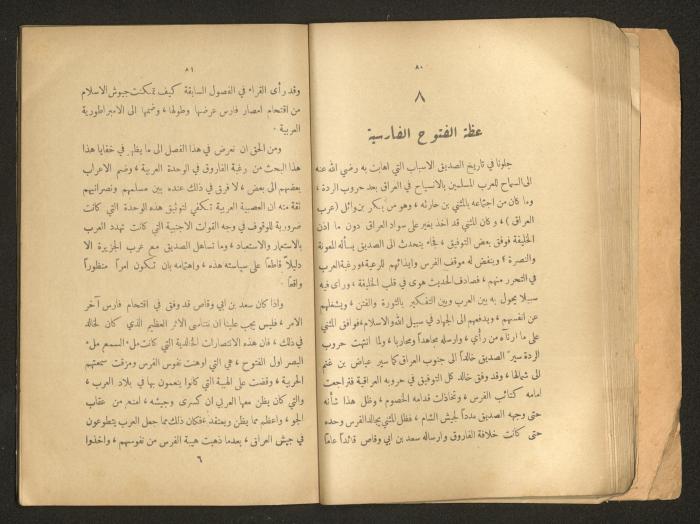 ٨٠
٨
عظة الفتوح الفارسية
جلونا في تاريخ الصديق الاسباب التي اهابت به رضي الله عنه
الى السماح للعرب المسلمين بالانسياح في العراق بعد حروب الردة ،
وما كان من اجتماعه بالمثنى بن حارثه ، وهو من بكر بن وائل ( عرب
العراق ) ، وكان المثنى قد اخذ يغير على سواد العراق دون ما اذن
الخليفة فوفق بعض التوفيق ، فجاء يتحدث الى الصديق يسأله المعونة
والنصرة ، ويبغض له موقف الفرس وايذائهم للرعية ، ورغبة العرب
في التحرر منهم ، فصادف الحديث هوى في قلب الخليفة ، ورأى فيه
سبيلا يحول به بين العرب وبين التفكير بالثورة والفتن ، ويشغلهم
عن انفسهم ، ويدفعهم الى الجهاد في سبيل الله والاسلام ، فوافق المثنى
على ما ارتآه من رأي ، وارسله مجاهداً ومحاربا ، ولما انتهت حروب
الردة سير الصديق خالداً الى جنوب العراق كما سير عياض بن غنم
الى شمالها ، وقد وفق خالد كل التوفيق في حروبه العراقية فتراجعت
امامه كتائب الفرس ، وتخاذلت قدامه الخصوم ، وظل هذا شأنه
حتى وجهه الصديق مدداً لجيش الشام ، فظل المثنى يجالد الفرس وحده
حتى كانت خلافة الفاروق وارساله سعد بن ابي وقاص قائداً عاماً
٨١
وقد رأى القراء في الفصول السابقة كيف تمكنت جيوش الاسلام
من اقتحام امصار فارس عرضها وطولها ، وضمها الى الامبراطورية
العربية .
ومن الحق ان نعرض في هذا الفصل الى ما يظهر في خفايا هذا
هذا البحث من رغبة الفاروق في الوحدة العربية ، وضم الاعراب
بعضهم الى بعض ، لا فرق في ذلك عنده بين مسلمهم ونصرانيهم
ثقة منه ان العصبية العربية تكفي لتوثيق هذه الوحدة التي كانت
ضرورية للوقوف في وجه القوات الاجنبية التي كانت تهدد العرب
بالاستعمار والاستعباد ، وما تساهل الصديق مع عرب الجزيرة الا
دليلاً قاطعاً على سياسته هذه ، واهتمامه بان تكون امراً منظوراً
واقعاً
واذا كان سعد بن ابي وقاص قد وفق في اقتحام فارس آخر
الامر ، فليس يجب علينا ان نتناسى الاثر العظيم الذي كان لخالد
في ذلك ، فان هذه الانتصارات الخالدية التي كانت ملء السمع ملء
البصر اول الفتوح ، هي التي اوهنت نفوس الفرس ومزقت سمعتهم
الحربية ، وقضت على الهيبة التي كانوا ينعمون بها في بلاد العرب ،
والتي كان يظن معها العربي ان كسرى وجيشه ، امنع من عقاب
الجو ، واعظم مما يظن ويعتقد ، فكان ذلك مما جعل العرب يتطوعون
في جيش العراق ، بعدما ذهبت هيبة الفرس من نفوسهم ، واخذوا
٦